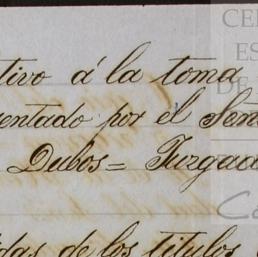 tivo á la toma
entado por el Señ
Dubos = Juzgad
das de los titulos
CE
ES
DE